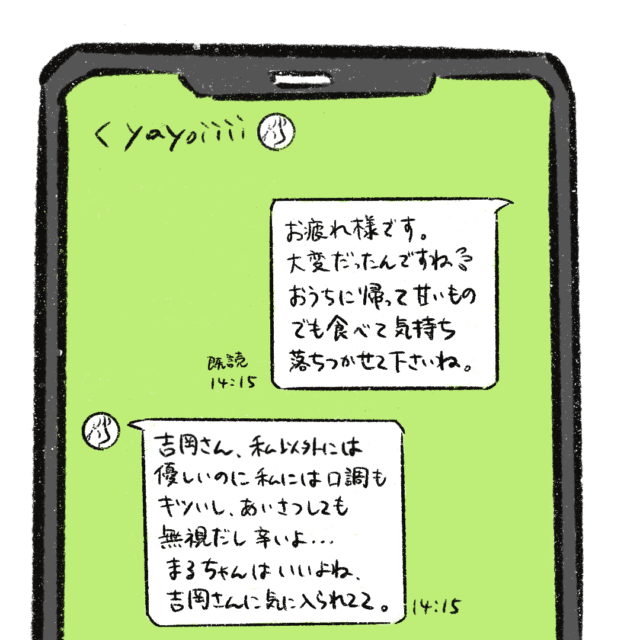 < yayoiiii
お疲れ様です。
大変だったんですね
おうちに帰って甘いもの
でも食べて気持ち
落ちつかせて下さいね。
既読
14:15
吉岡さん、私以外には
優しいのに私には口調も
キツいし、あいさつしても
無視だし辛いよ...
まるちゃんはいいよね、
吉岡さんに気に入られてて。
14:15